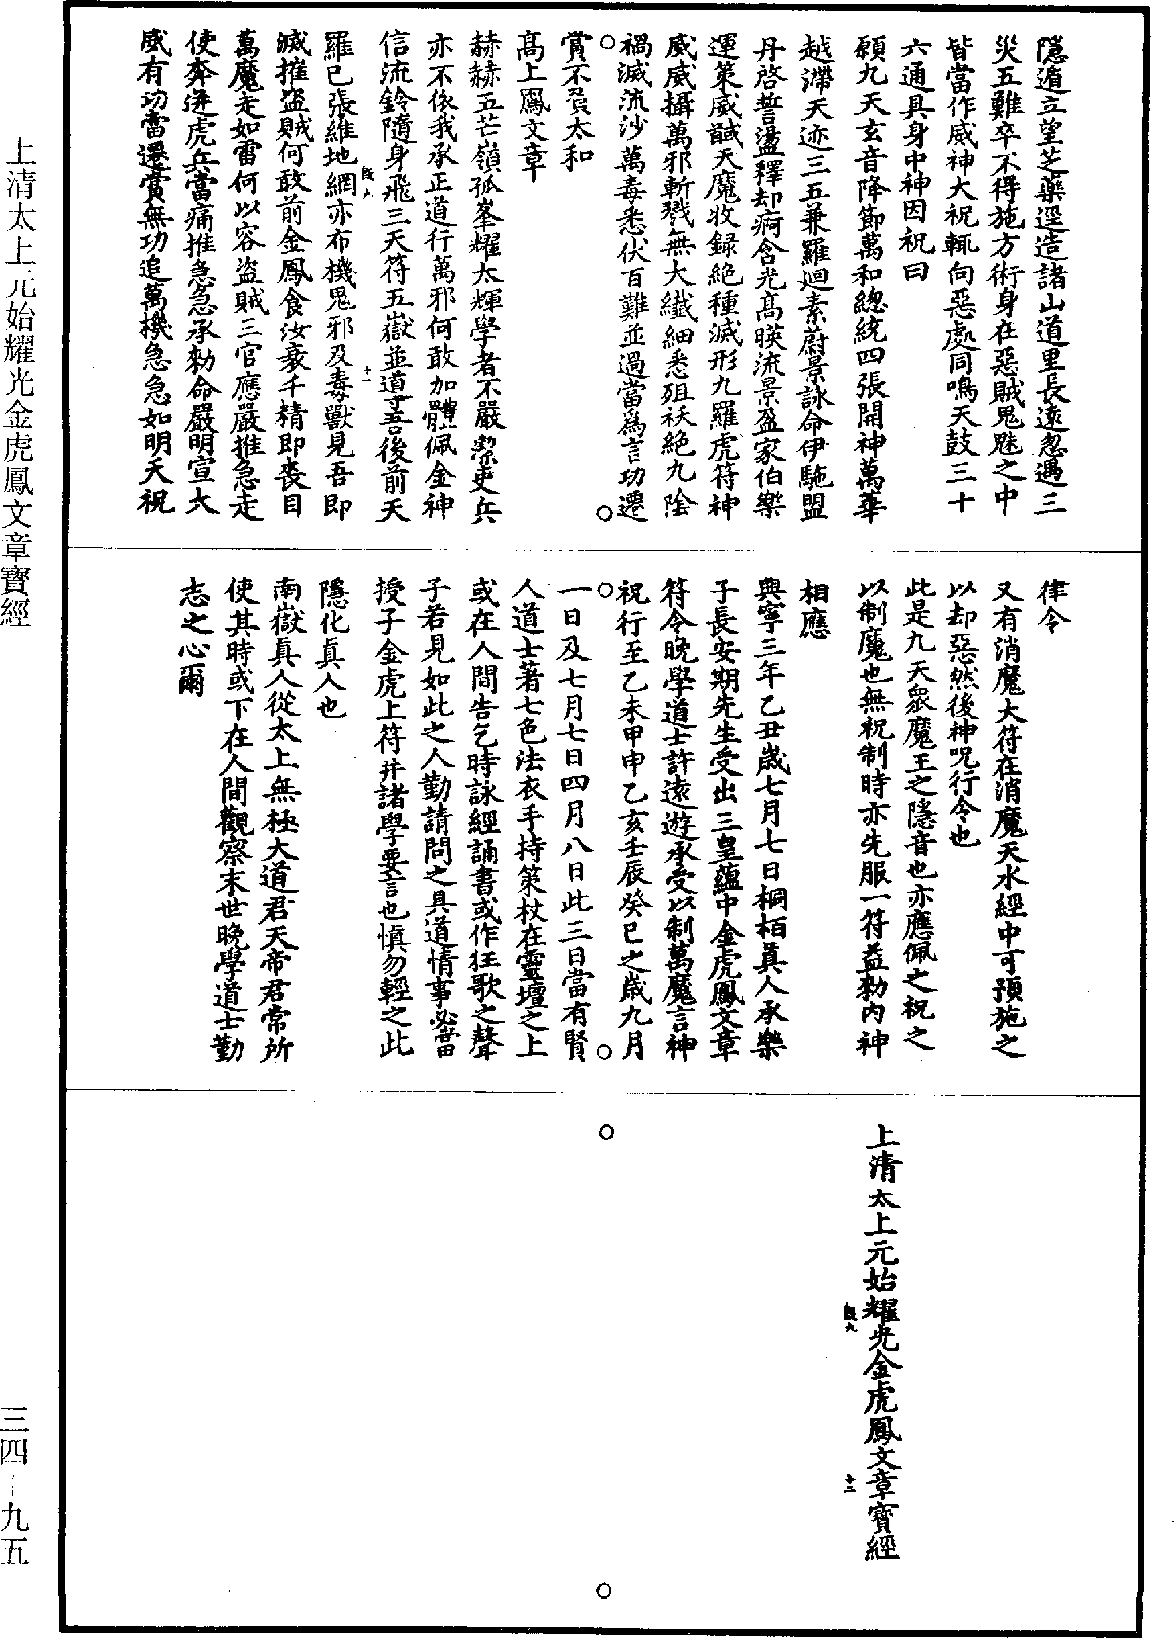 隱遁立望芝藥逕造諸山道里長遠忽遇三
災五難卒不得施方術身在惡賊鬼魅之中
皆當作威神大祝輒向惡處同鳴天鼓三十
六通具身中神因祝曰
願九天玄音降節萬和總統四張開神萬華
越滯天迹三五兼羅迴素蔚景詠命伊駞盟
丹啓誓盪釋却痾含光高暎流景盈家伯樂
運策威馘天魔收録絶種滅形九羅虎符神
威威攝萬邪斬戮無大纖細悉殂袄絶九陰
禍滅流沙萬毒悉伏百難並過當爲言功遷
賞不負太和
高上鳳文章
赫赫五芒嶺孤峯耀太輝學者不嚴潔吏兵
亦不依我承正道行萬邪何敢加體佩金神
信流鈴隨身飛三天符五嶽並導吾後前天
羅已張維地網亦布機鬼邪及毒獸見吾即
滅摧盜賊何敢前金鳳食汝衰千精即喪目
萬魔走如雷何以容盜賊三官應嚴推急走
使奔迸虎兵當痛推急急承勑命嚴明宣大
威有功當遷賞無功追萬機急急如明天祝
律令
又有消魔大符在消魔天水經中可預施之
以却惡然後神呪行令也
此是九天衆魔王之隱音也亦應佩之祝之
以制魔也無祝制時亦先服一符益勑内神
相應
興寧三年乙丑歲七月七日桐栢真人承樂
子長安期先生受出三皇蘊中金虎鳳文章
符令晚學道士許遠遊承受以制萬魔言神
祝行至乙未甲申乙亥壬辰癸巳之歲九月
一日及七月七日四月八日此三日當有賢
人道士著七色法衣手持策杖在靈壇之上
或在人間告乞時詠經誦書或作狂歌之聲
子若見如此之人勤請問之具道情事必當
授子金虎上符并諸學要言也慎勿輕之此
隱化真人也
南嶽真人從太上無極大道君天帝君常所
使其時或下在人間觀察末世晚學道士勤
志之心爾
上清太上元始耀光金虎鳳文章寶經
十一
十二
上清太上元始耀光金虎鳳文章寶經
三四—九五